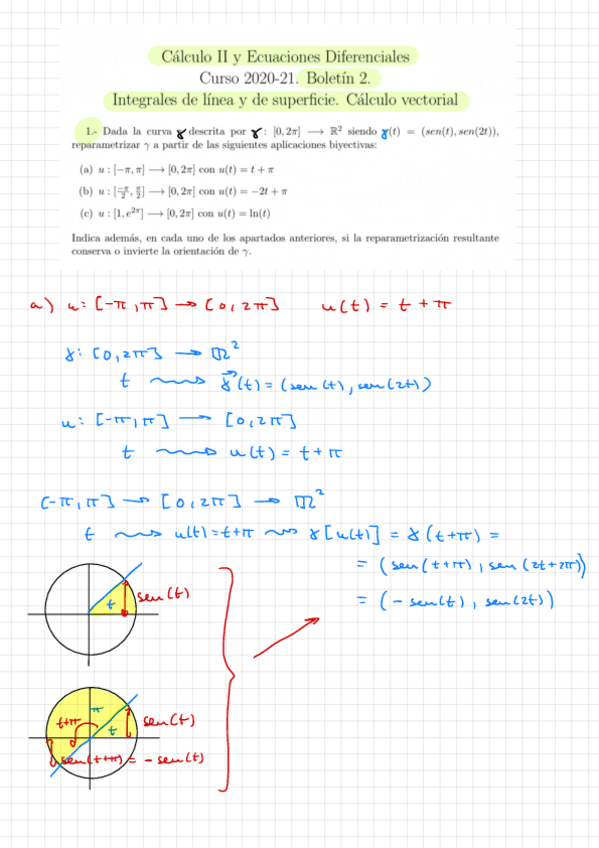 Cálculo II y Ecuaciones Diferenciales
Curso 2020-21. Boletín 2.
Integrales de línea y de superficie. Cálculo vectorial
1.- Dada la curva γ descrita por γ : [0, 2π] ⟶ ℝ² siendo γ(t) = (sen(t), sen(2t)),
reparametrizar γ a partir de las siguientes aplicaciones biyectivas:
(a) u : [−π, π] ⟶ [0, 2π] con u(t) = t + π
(b) u : [−π/2, π/2] ⟶ [0, 2π] con u(t) = −2t + π
(c) u : [1, e^{2π}] ⟶ [0, 2π] con u(t) = ln(t)
Indica además, en cada uno de los apartados anteriores, si la reparametrización resultante
conserva o invierte la orientación de γ.
a) u: [-π, π] → [0, 2π] u(t) = t + π
γ: [0, 2π] → ℝ²
t ⇝ γ⃗(t) = (sen(t), sen(2t))
u: [-π, π] → [0, 2π]
t ⇝ u(t) = t + π
[-π, π] → [0, 2π] → ℝ²
t ⇝ u(t) = t+π ⇝ γ[u(t)] = γ(t+π) =
= (sen(t+π), sen(2t+2π))
= (-sen(t), sen(2t))
t sen(t)
π
t+π t sen(t)
sen(t+π) = -sen(t)